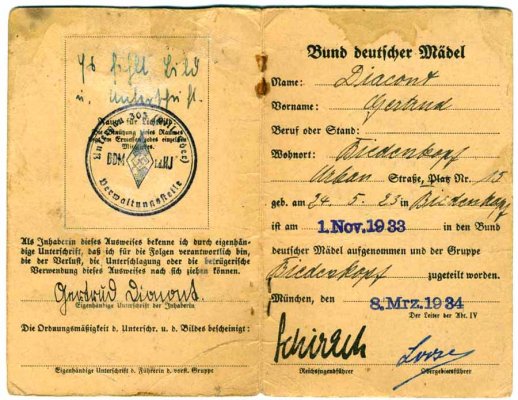 Es fehlt Bild
u. Unterschrift.
Raum für Lochbild:
303
BDM i.d.HJ
Verwaltungsstelle
Als Inhaberin dieses Ausweises bekenne ich durch eigenhän-
dige Unterschrift, daß ich für die Folgen verantwortlich bin,
die der Verlust, die Unterschlagung oder die betrügerische
Verwendung dieses Ausweises nach sich ziehen können.
Gertrud Diamont.
Eigenhändige Unterschrift der Inhaberin
Die Ordnungsmäßigkeit d. Unterschr. u. d. Bildes bescheinigt:
Eigenhändige Unterschrift d. Führerin d. vorst. Gruppe
Bund deutscher Mädel
Name: Diamont
Vorname: Gertrud
Beruf oder Stand:
Wohnort: Biedenkopf
Urban Straße, Platz Nr. 15
geb. am 24. 5. 23 in Biedenkopf
ist am 1. Nov. 1933 in den Bund
deutscher Mädel aufgenommen und der Gruppe
Biedenkopf zugeteilt worden.
München, den 8. Mrz. 1934
Der Leiter der Abt. IV
Schirach
Reichsjugendführer Obergebietsführer